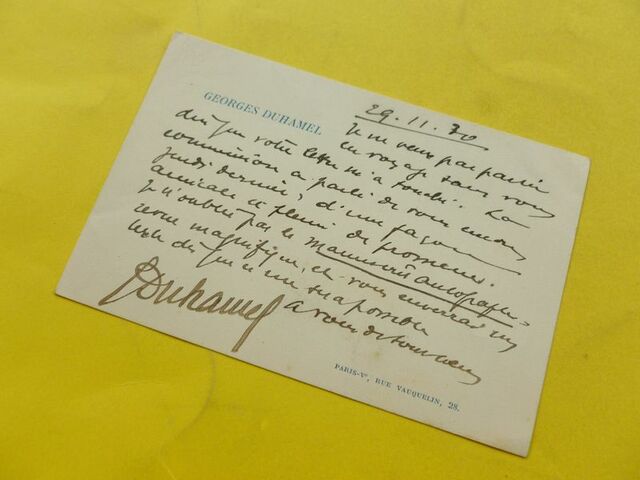 GEORGES DUHAMEL
29.11.30
Je ne veux pas partir
en voyage sans vous
dire que votre lettre m'a touché. La
commission a parlé de vous encore
jeudi dernier, d'une façon
amicale et pleine de promesses.
Je n'oublie pas le manuscrit autographe
revue magnifique, et vous enverrai un
texte dès que ce me sera possible
à vous de tout cœur
GDuhamel
PARIS-Vᵉ, RUE VAUQUELIN, 28.